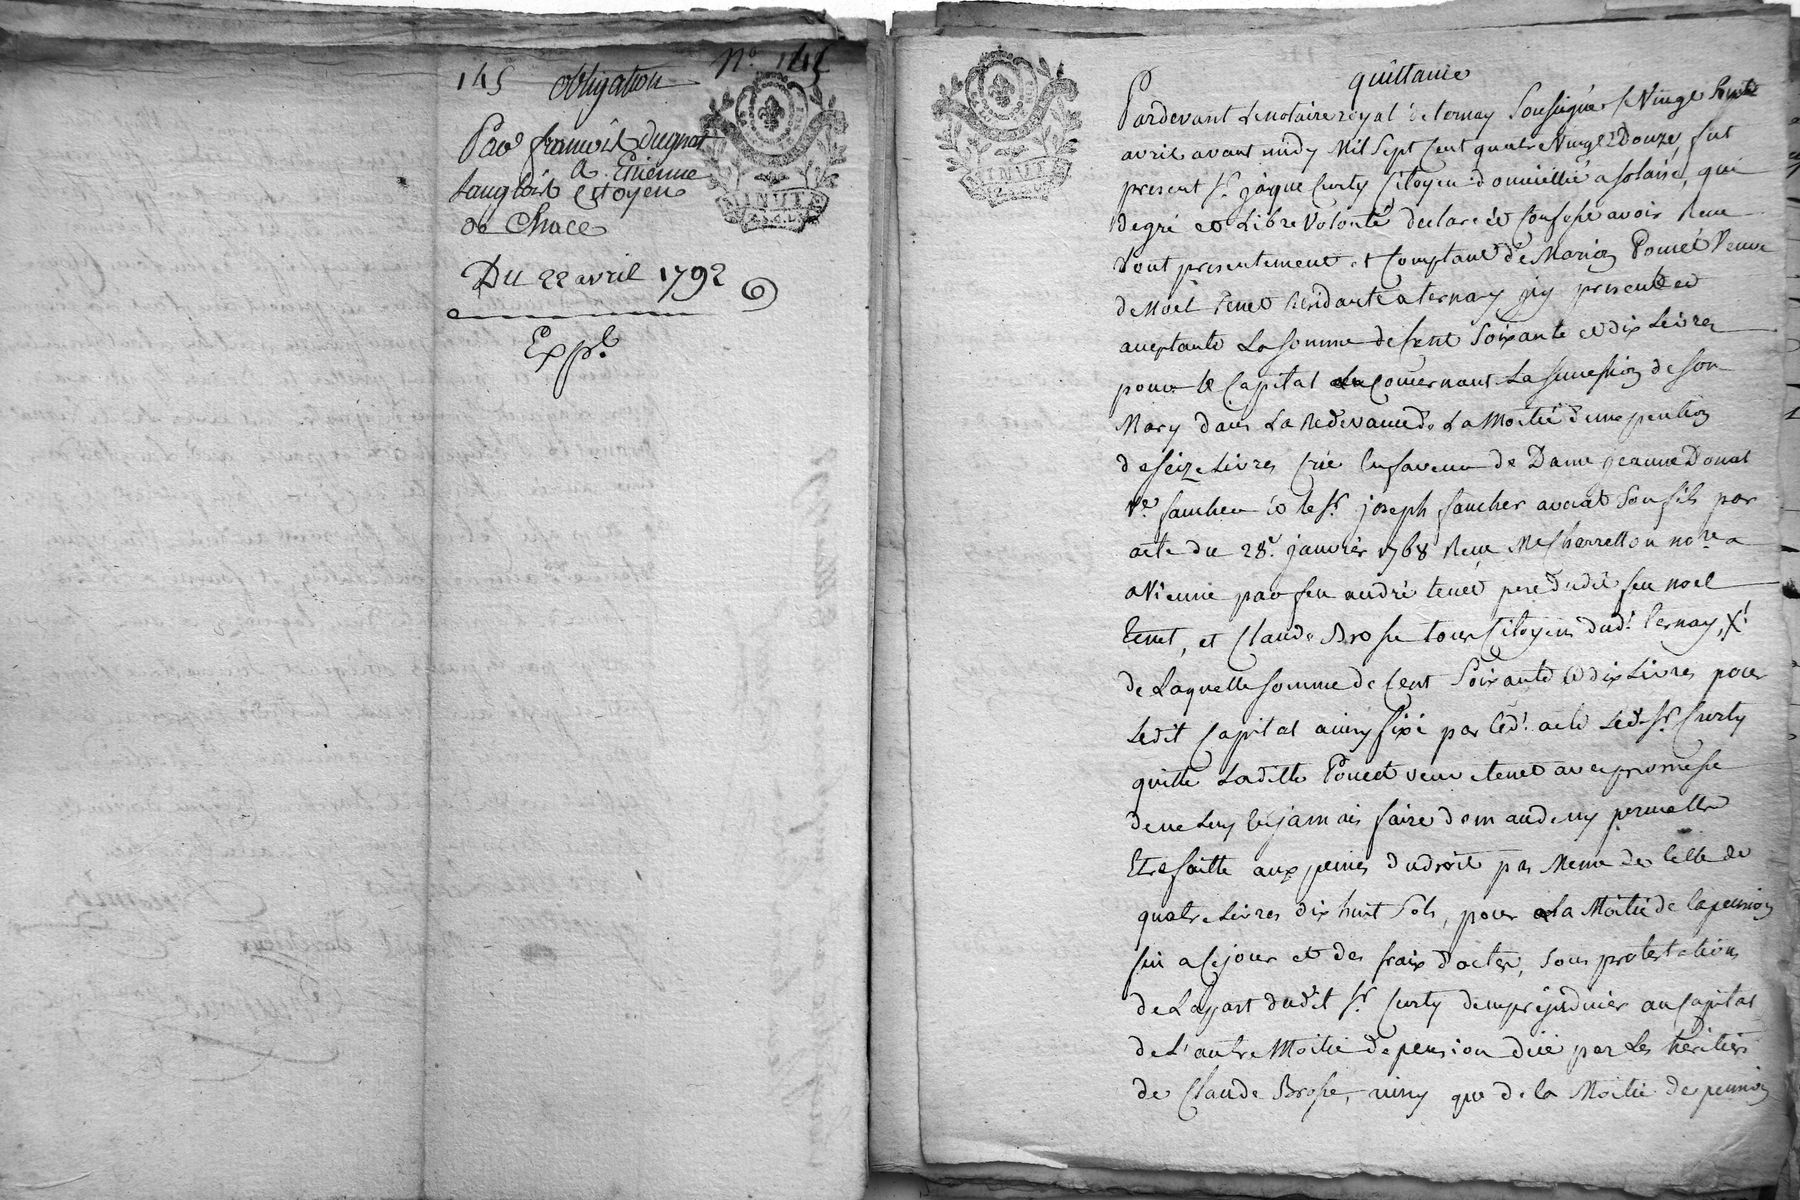 145 obligation
N.o 145
Par françois dugnat
a Etienne
Langlois Citoyen
de Chuce
Du 22 avril 1792
Exp.e
MINUT
MINUT
quittance
Pardevant Le notaire royal de ternay Soussigné Ce Vingt
avril avant midy Mil Sept Cent quatre Vingt Douze, fut
present Sr. jaque Curty Citoyen domicillié a solaise, qui
de gré et Libre Volonté declare et Confesse avoir Reçu
tout presentement et Comptant de Marie Poncet Veuve
de Noël tenet Residante a ternay icy presente et
aceptante La somme de Cent Soixante et dix Livres
pour le Capital Concernant La succession de son
Mary dans La Redevance de La Moitié d'une pention
de seize Livres Crée En faveur de Dame jeanne Donat
Ve. faucher et le Sr. joseph faucher avocat Son fils par
acte du 28e. janvier 1768 Reçu Me Charretton nore a
Vienne par feu andré tenet pere dudit feu noel
tenet, et Claude Brosse tous Citoyens dud.t ternay, X!
de Laquelle somme de Cent Soixante et dix Livres pour
Ledit Capital ainsy fixé par led.t acte Led. Sr. Curty
quitte Laditte Poncet veuve tenet avec promesse
de ne Luy En jamais faire demande ny permettre
Etre faitte aux peines du droit pas Meme de Celle de
quatre Livres dix huit Sols, pour La Moitié de la pension
a Ce jour et des fraix d'actes, Sous protestations
de La part dudit Sr. Curty de ne prejudicier au Capital
de L'autre Moitié de pension düe par Les heritiers
de Claude Brosse, ainsy que de la Moitié de pension